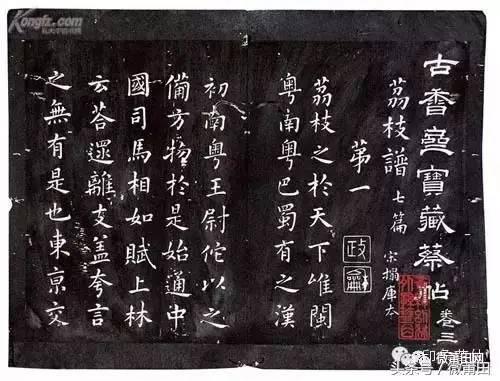 古香齋寶藏蔡帖 卷三
荔枝譜 七篇
宋搨庫本
第一
荔枝之於天下唯閩
粵南粵巴蜀有之漢
初南粵王尉佗以之
備方物於是始通中
國司馬相如賦上林
云荅遝離支蓋夸言
之無有是也東京交
Kongfz.com
头条号/微莆田